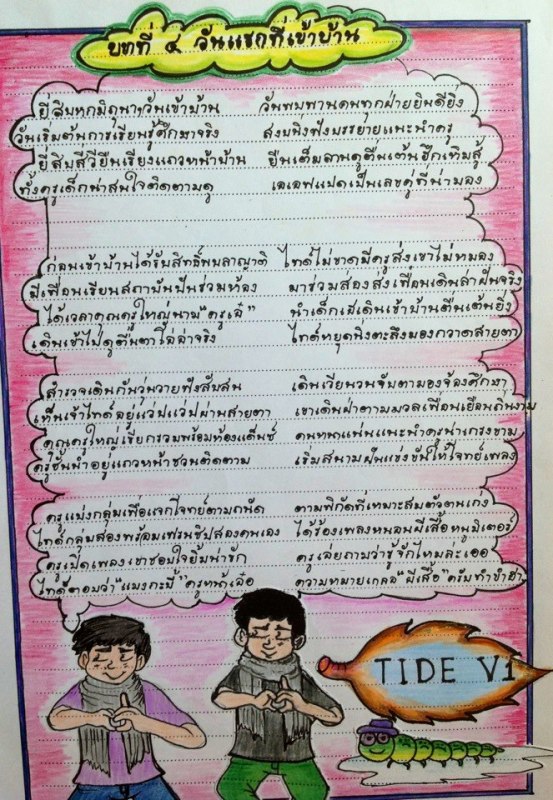 บทที่ ๔ วันแรกที่เข้าบ้าน
ยี่สิบหกมิถุนาฯวันเข้าบ้าน วันพบพานคนทุกฝ่ายยินดียิ่ง
วันเริ่มต้นการเรียนรู้ศึกษาจริง สงบนิ่งฟังบรรยายแนะนำครู
ยี่สิบสี่วียืนเรียงแถวหน้าบ้าน ยืนเต็มลานดูตื่นเต้นฮึกเหิมสู้
ทั้งครูเด็กน่าสนใจติดตามดู เลขแปดเป็นเลขคู่ที่น่ามอง
ก่อนเข้าบ้านได้รับสิทธิ์พบลาญาติ ไทด์ไม่ขาดมีครูส่งเขาไม่หมอง
มีเพื่อนเรียนสถาบันปันร่วมห้อง มาร่วมส่องส่งเพื่อนเดินล่าฝันจริง
ได้เวลาคุณครูใหญ่นาม"ครูเจี๋" นำเด็กเดินเข้าบ้านตื่นเต้นยิ่ง
เดินเข้าไปดูตื่นตาไล่ล่าจริง ไทด์หยุดนิ่งตะลึงมองกวาดสายตา
สำรวจเดินกันวุ่นวายฟังสับสน เดินเวียนวนจับตามองจ้องศึกษา
เห็นเจ้าไทด์อยู่แว่บแว่บผ่านสายตา เขาเดินฝ่าตามมวลเพื่อนเยือนถิ่นงาม
คุณครูใหญ่เรียกรวมพร้อมห้องแด๊นซ์ คนหนาแน่นแนะนำครูน่าเกรงขาม
ครูชั้นนำอยู่แถวหน้าชวนติดตาม เริ่มสนามฝันแข่งขันให้โจทย์เพลง
ครูแบ่งกลุ่มเพื่อแจกโจทย์ตามถนัด ตามพิกัดที่เหมาะสมตัวตนเก่ง
ไทด์กลุ่มสองพร้อมเฟรนชิปสองคนเอง ได้ร้องเพลงหนอนผีเสื้อหนูมิเตอร์
ครูเปิดเพลงเขาชอบใจยิ้มน่ารัก ครูเอ่ยถามว่ารู้จักไหมล่ะเออ
ไทด์ตอบว่า"แมงกะบี้"ครูหาก ความหมายเกลอ"ผีเสื้อ"ครับ
TIDE V1